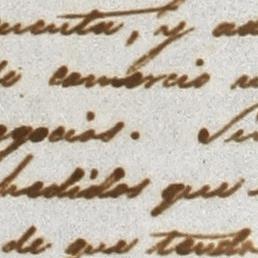 cuenta, y ad
de comercio u
egocios. Sin
pedidos que
de que tendr